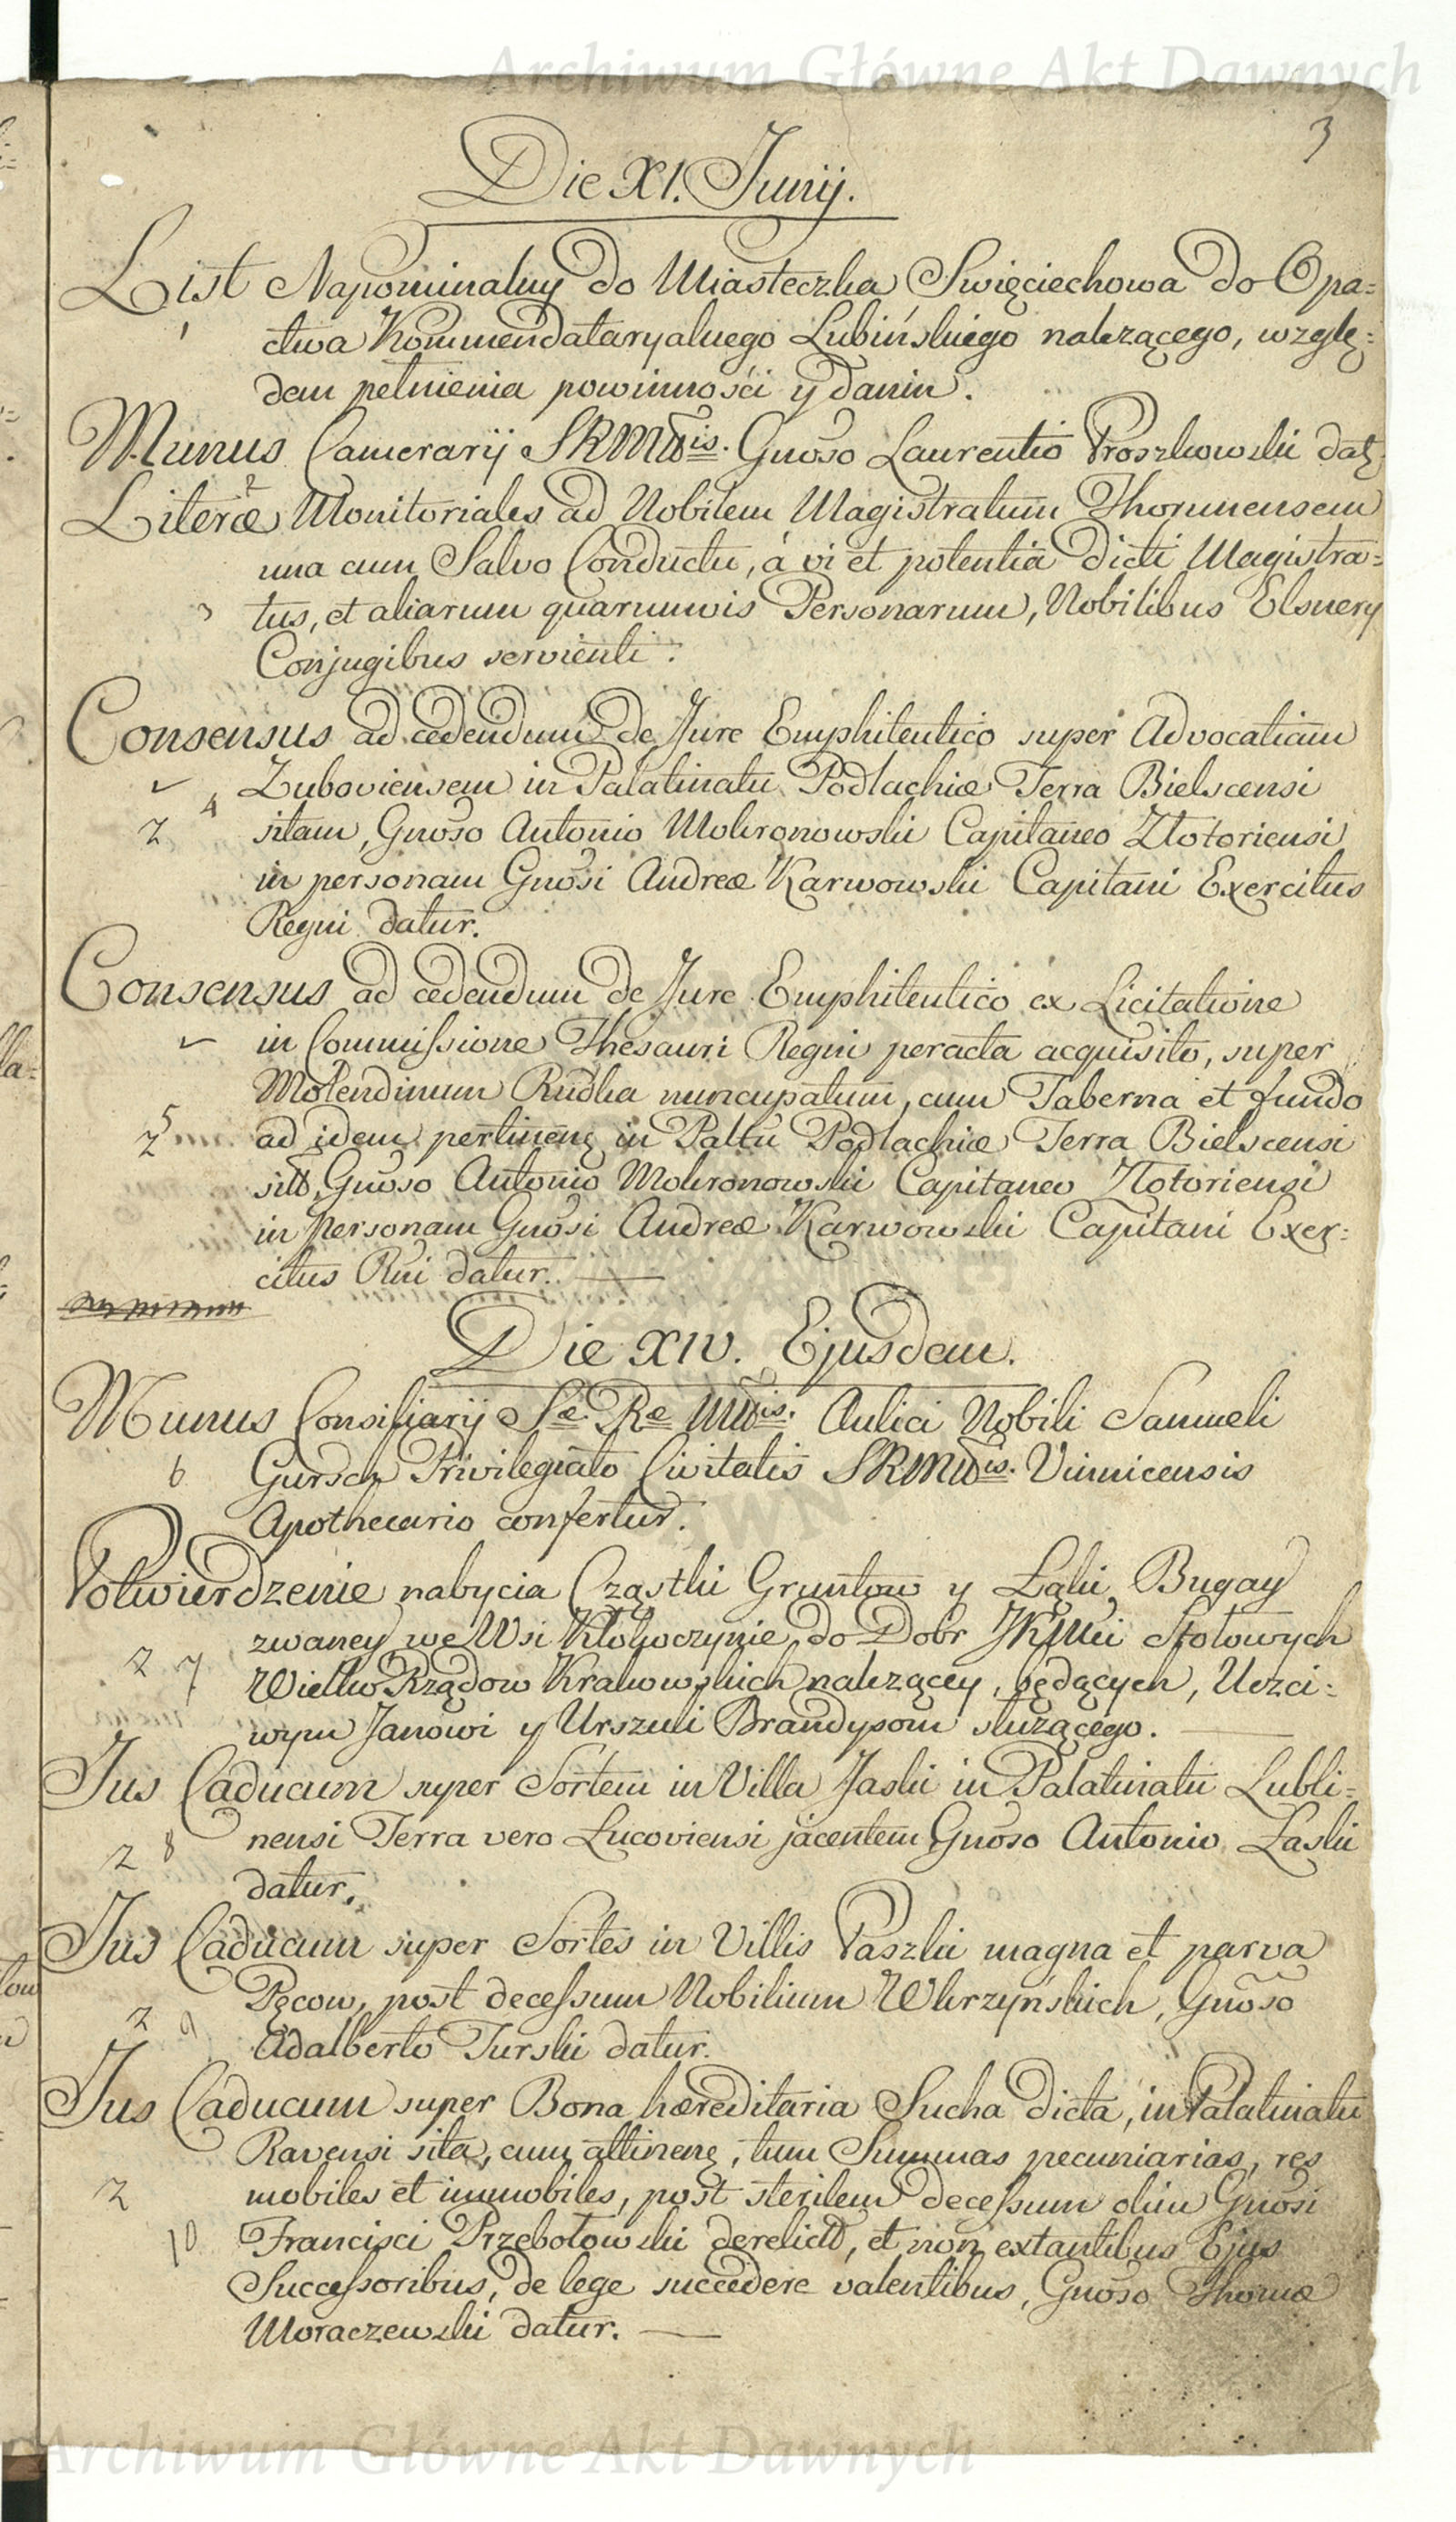 Archiwum Główne Akt Dawnych
3
Die XI. Junij.
List Napominalny do Miasteczka Swięciechowa do Opa=
1
ctwa Kommendataryalnego Lubińskiego należącego, wzglę=
dem pełnienia powinności y danin.
Munus Camerarij SRMttis. Gnoso Laurentio Proszkowski datz
2
Literæ Monitoriales ad Nobilem Magistratum Thorunensem
una cum Salvo Conductu, à vi et potentia dicti Magistra=
3 tus, et aliarum quarumvis Personarum, Nobilibus Elsnery
Conjugibus servienti.
Consensus ad cedendum de Jure Emphiteutico super Advocatiam
Zuboviensem in Palatinatu Podlachiæ Terra Bielscensi
4
2 sitam, Gnoso Antonio Mokronowski Capitaneo Złotoriensi
in personam Gnosi Andreæ Karwowski Capitani Exercitus
Regni datur.
Consensus ad cedendum de Jure Emphiteutico ex Licitatione
in Commissione Thesauri Regni peracta acquisito, super
Molendinum Rudka nuncupatum, cum Taberna et fundo
5
2 ad idem pertinenz in Pałtu Podlachiæ Terra Bielscensi
sito, Gnoso Antonio Mokronowski Capitaneo Złotoriensi
in personam Gnosi Andreæ Karwowski Capitani Exer=
citus Rni datur.
Die XIV. Ejusdem.
Munus Consiliarij Sæ Ræ Mttis. Aulici Nobili Samueli
6 Gursch Privilegiato Civitatis SRMttis. Vinnicensis
Apothecario confertur.
Potwierdzenie nabycia Cząstki Gruntow y Łąki, Bugay
zwaney we Wsi Kłokoczynie do Dobr JKMci Stołowych
2 7 Wielko Rządow Krakowskich należącey, będących, Uczci=
wym Janowi y Urszuli Brandysom służącego.
Jus Caducum super Sortem in Villa Jaski in Palatinatu Lubli=
2 8 nensi Terra vero Lucoviensi jacentem Gnoso Antonio Łaski
datur.
Jus Caducum super Sortes in Villis Paszki magna et parva
2 9 Pęcow, post decessum Nobilium Wkrzyńskich, Gnoso
Adalberto Turski datur.
Jus Caducum super Bona hæreditaria Sucha dicta, in Palatinatu
Ravensi sita, cum attinenz, tum Summas pecuniarias, res
2 mobiles et immobiles, post sterilem decessum olim Gnosi
10 Francisci Przebotowski derelicto, et non extantibus Ejus
Successoribus, de lege succedere valentibus, Gnoso Thomæ
Moraczewski datur.
Archiwum Główne Akt Dawnych